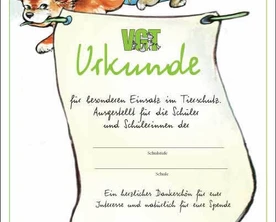 VGT
Urkunde
für besonderen Einsatz im Tierschutz.
Ausgestellt für die Schüler
und Schülerinnen der
Schulstufe
Schule
Ein herzlicher Dankeschön für euer
Interesse und natürlich für eure Spende